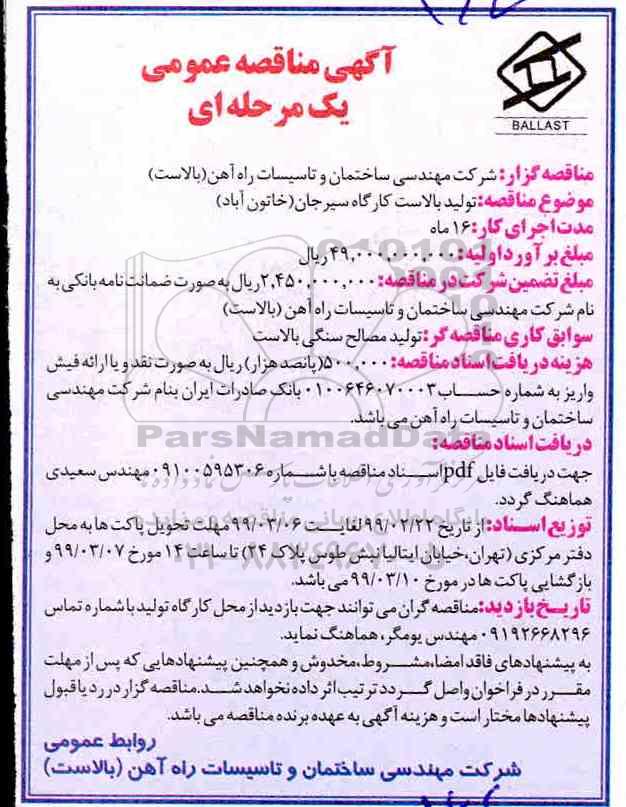 آگهی مناقصه عمومی
یک مرحله ای
BALLAST
مناقصه گزار: شرکت مهندسی ساختمان و تاسیسات راه آهن(بالاست)
موضوع مناقصه: تولید بالاست کارگاه سیرجان(خاتون آباد)
مدت اجرای کار: ۱۶ ماه
مبلغ برآورد اولیه: ۴۹,۰۰۰,۰۰۰,۰۰۰ ریال
مبلغ تضمین شرکت در مناقصه: ۲,۴۵۰,۰۰۰,۰۰۰ ریال به صورت ضمانت نامه بانکی به
نام شرکت مهندسی ساختمان و تاسیسات راه آهن (بالاست)
سوابق کاری مناقصه گر: تولید مصالح سنگی بالاست
هزینه دریافت اسناد مناقصه: ۵۰۰,۰۰۰(پانصد هزار) ریال به صورت نقد و یا ارائه فیش
واریز به شماره حساب ۰۱۰۰۶۴۶۰۷۰۰۰۳ بانک صادرات ایران بنام شرکت مهندسی
ساختمان و تاسیسات راه آهن می باشد.
ParsNamadData
دریافت اسناد مناقصه:
جهت دریافت فایل pdf اسناد مناقصه با شماره ۰۹۱۰۰۵۹۵۳۰۶ مهندس سعیدی
هماهنگ گردد.
توزیع اسناد: از تاریخ ۹۹/۰۲/۲۲ لغایت ۹۹/۰۳/۰۶ مهلت تحویل پاکت ها به محل
دفتر مرکزی (تهران،خیابان ایتالیا نبش طوس پلاک ۲۴) تا ساعت ۱۴ مورخ ۹۹/۰۳/۰۷ و
بازگشایی پاکت ها در مورخ ۹۹/۰۳/۱۰ می باشد.
تاریخ بازدید: مناقصه گران می توانند جهت بازدید از محل کارگاه تولید با شماره تماس
۰۹۱۹۲۶۶۸۲۹۶ مهندس یومگر، هماهنگ نماید.
به پیشنهادهای فاقد امضا،مشروط،مخدوش و همچنین پیشنهادهایی که پس از مهلت
مقرر در فراخوان واصل گردد ترتیب اثر داده نخواهد شد.مناقصه گزار در رد یا قبول
پیشنهادها مختار است و هزینه آگهی به عهده برنده مناقصه می باشد.
روابط عمومی
شرکت مهندسی ساختمان و تاسیسات راه آهن (بالاست)